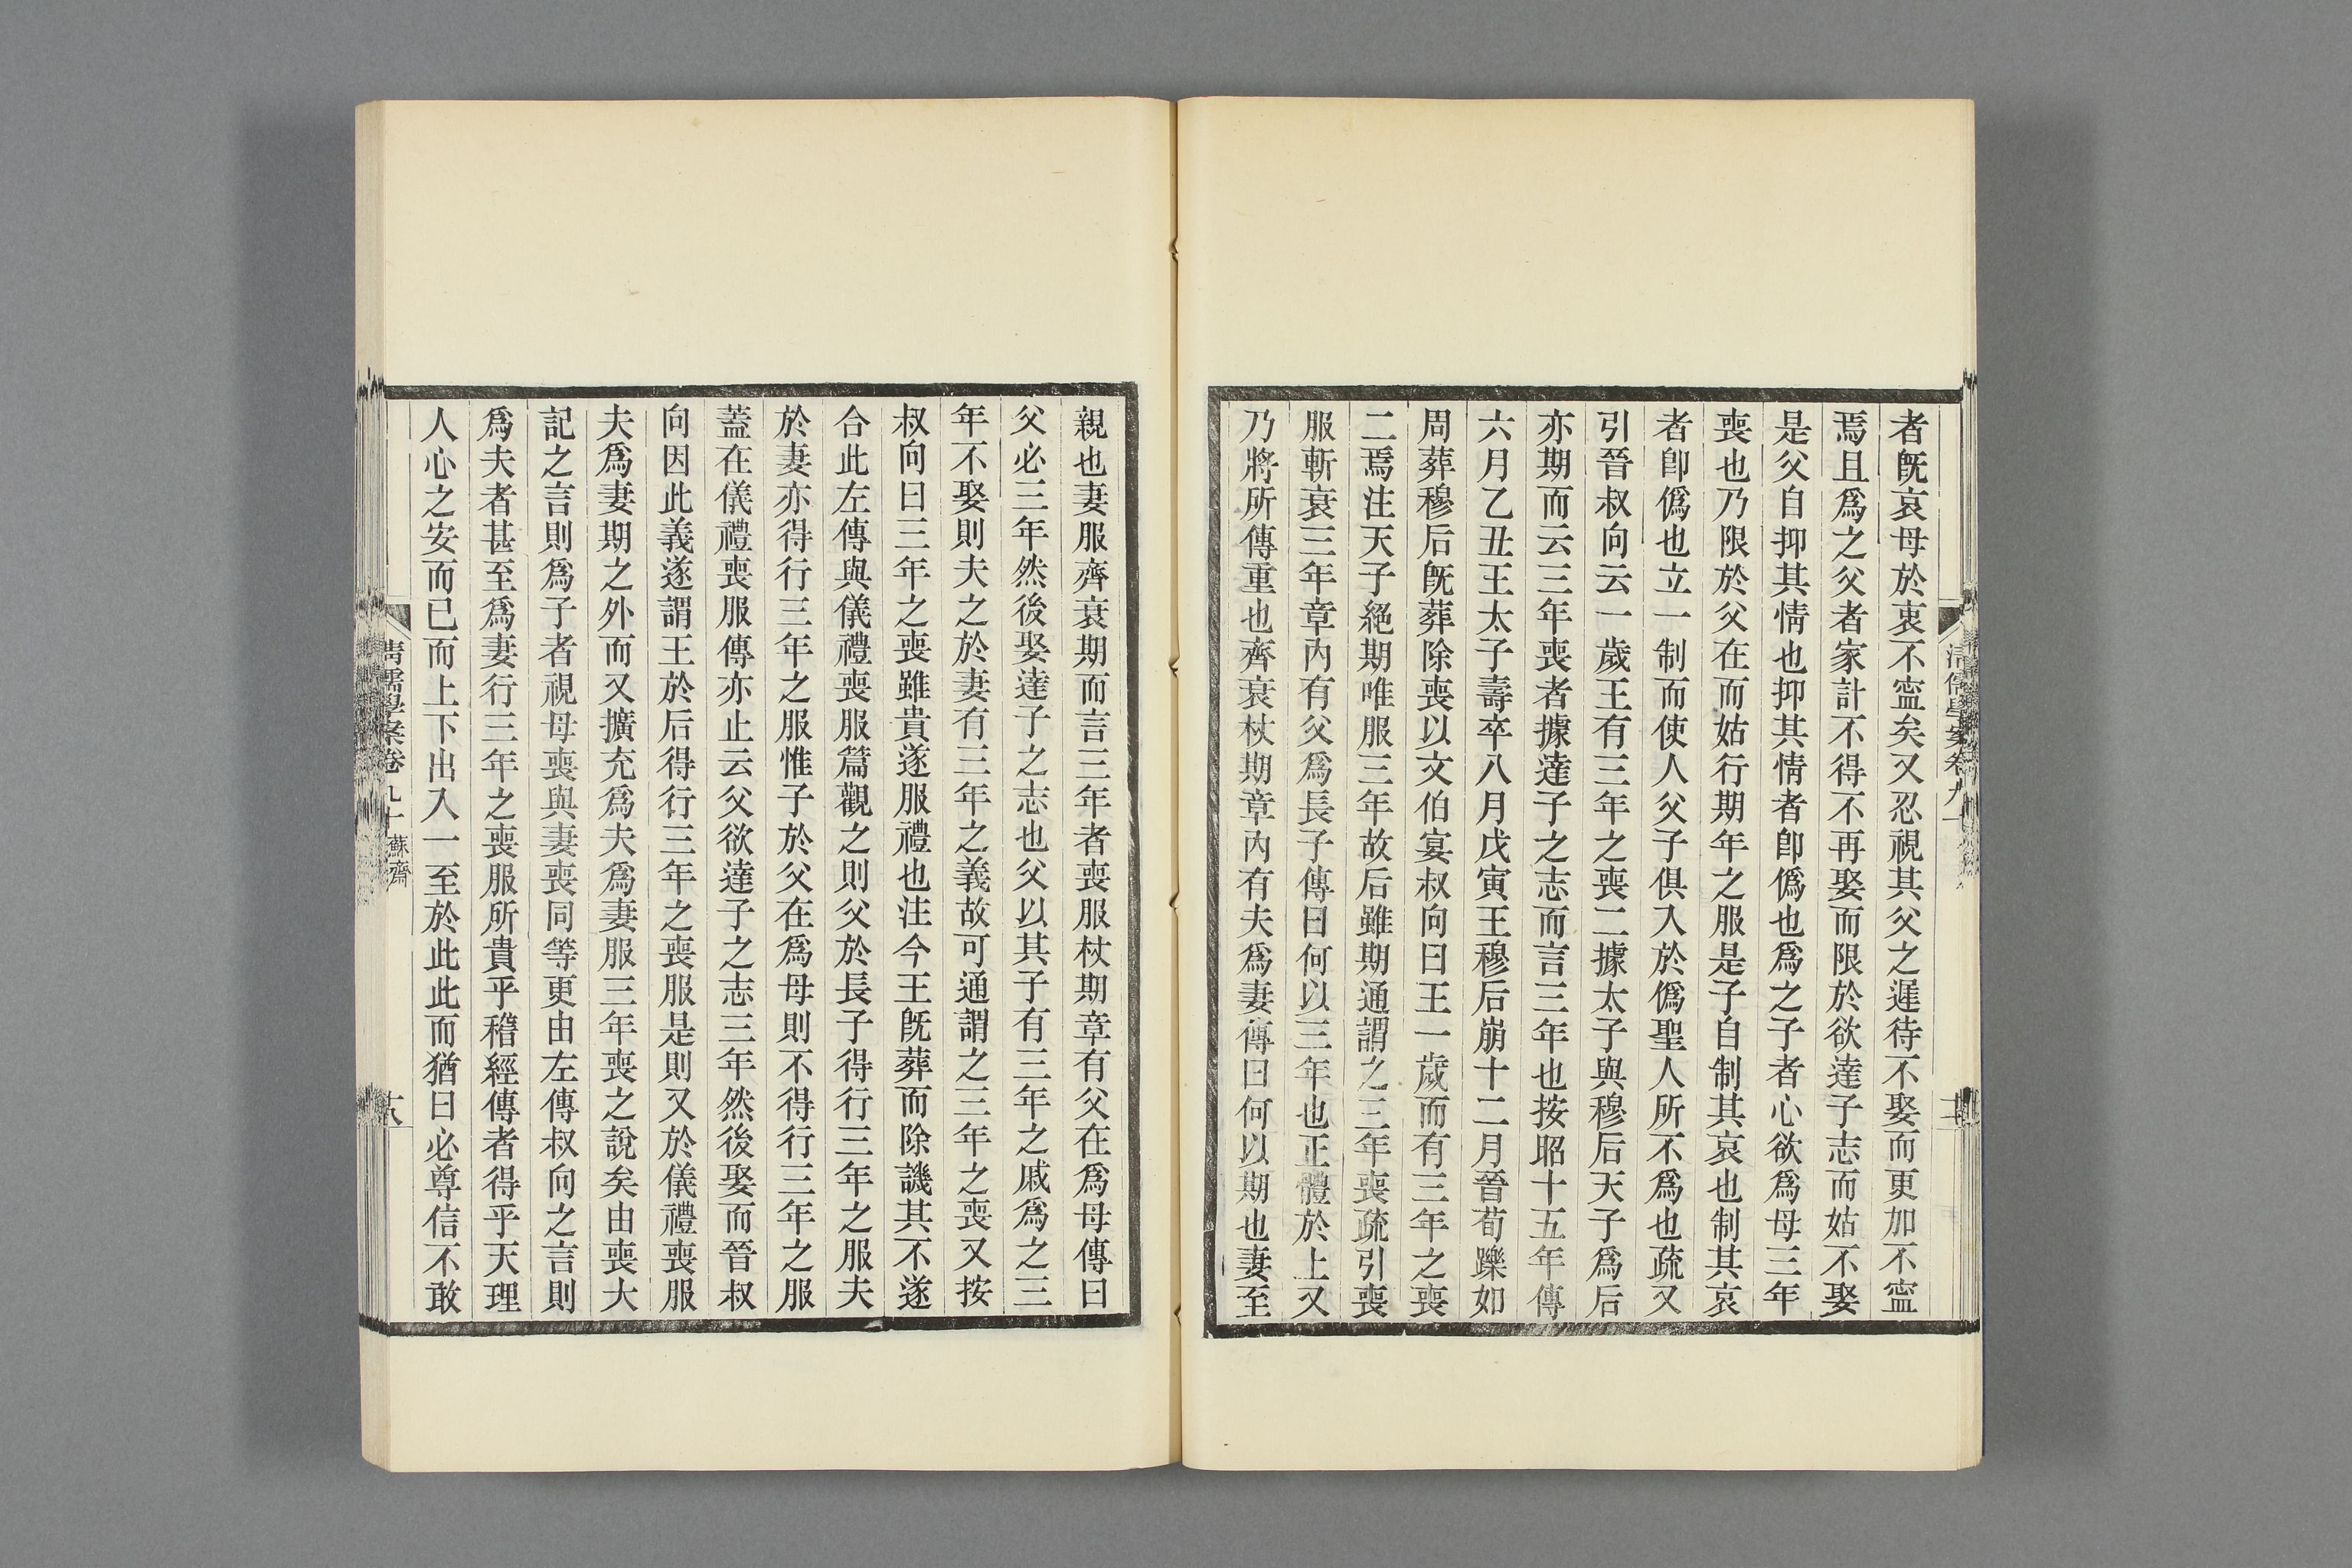 者既哀母於衷不寍矣又忍視其父之遲待不娶而更加不寍
焉且爲之父者家計不得不再娶而限於欲達子志而姑不娶
是父自抑其情也抑其情者卽僞也爲之子者心欲爲母三年
喪也乃限於父在而姑行期年之服是子自制其哀也制其哀
者卽僞也立一制而使人父子俱入於僞聖人所不爲也疏又
引晉叔向云一歲王有三年之喪二據太子與穆后天子爲后
亦期而云三年喪者據達子之志而言三年也按昭十五年傳
六月乙丑王太子壽卒八月戊寅王穆后崩十二月晉荀躒如
周葬穆后既葬除喪以文伯宴叔向曰王一歲而有三年之喪
二焉注天子絕期唯服三年故后雖期通謂之三年喪疏引喪
服斬衰三年章內有父爲長子傳曰何以三年也正體於上又
乃將所傳重也齊衰杖期章內有夫爲妻傳曰何以期也妻至
親也妻服齊衰期而言三年者喪服杖期章有父在爲母傳曰
父必三年然後娶達子之志也父以其子有三年之戚爲之三
年不娶則夫之於妻有三年之義故可通謂之三年之喪又按
叔向曰三年之喪雖貴遂服禮也注今王既葬而除譏其不遂
合此左傳與儀禮喪服篇觀之則父於長子得行三年之服夫
於妻亦得行三年之服惟子於父在爲母則不得行三年之服
蓋在儀禮喪服傳亦止云父欲達子之志三年然後娶而晉叔
向因此義遂謂王於后得行三年之喪服是則又於儀禮喪服
夫爲妻期之外而又擴充爲夫爲妻服三年喪之說矣由喪大
記之言則爲子者視母喪與妻喪同等更由左傳叔向之言則
爲夫者甚至爲妻行三年之喪服所貴乎稽經傳者得乎天理
人心之安而已而上下出入一至於此此而猶曰必尊信不敢
清儒學案卷九十 蘇齋